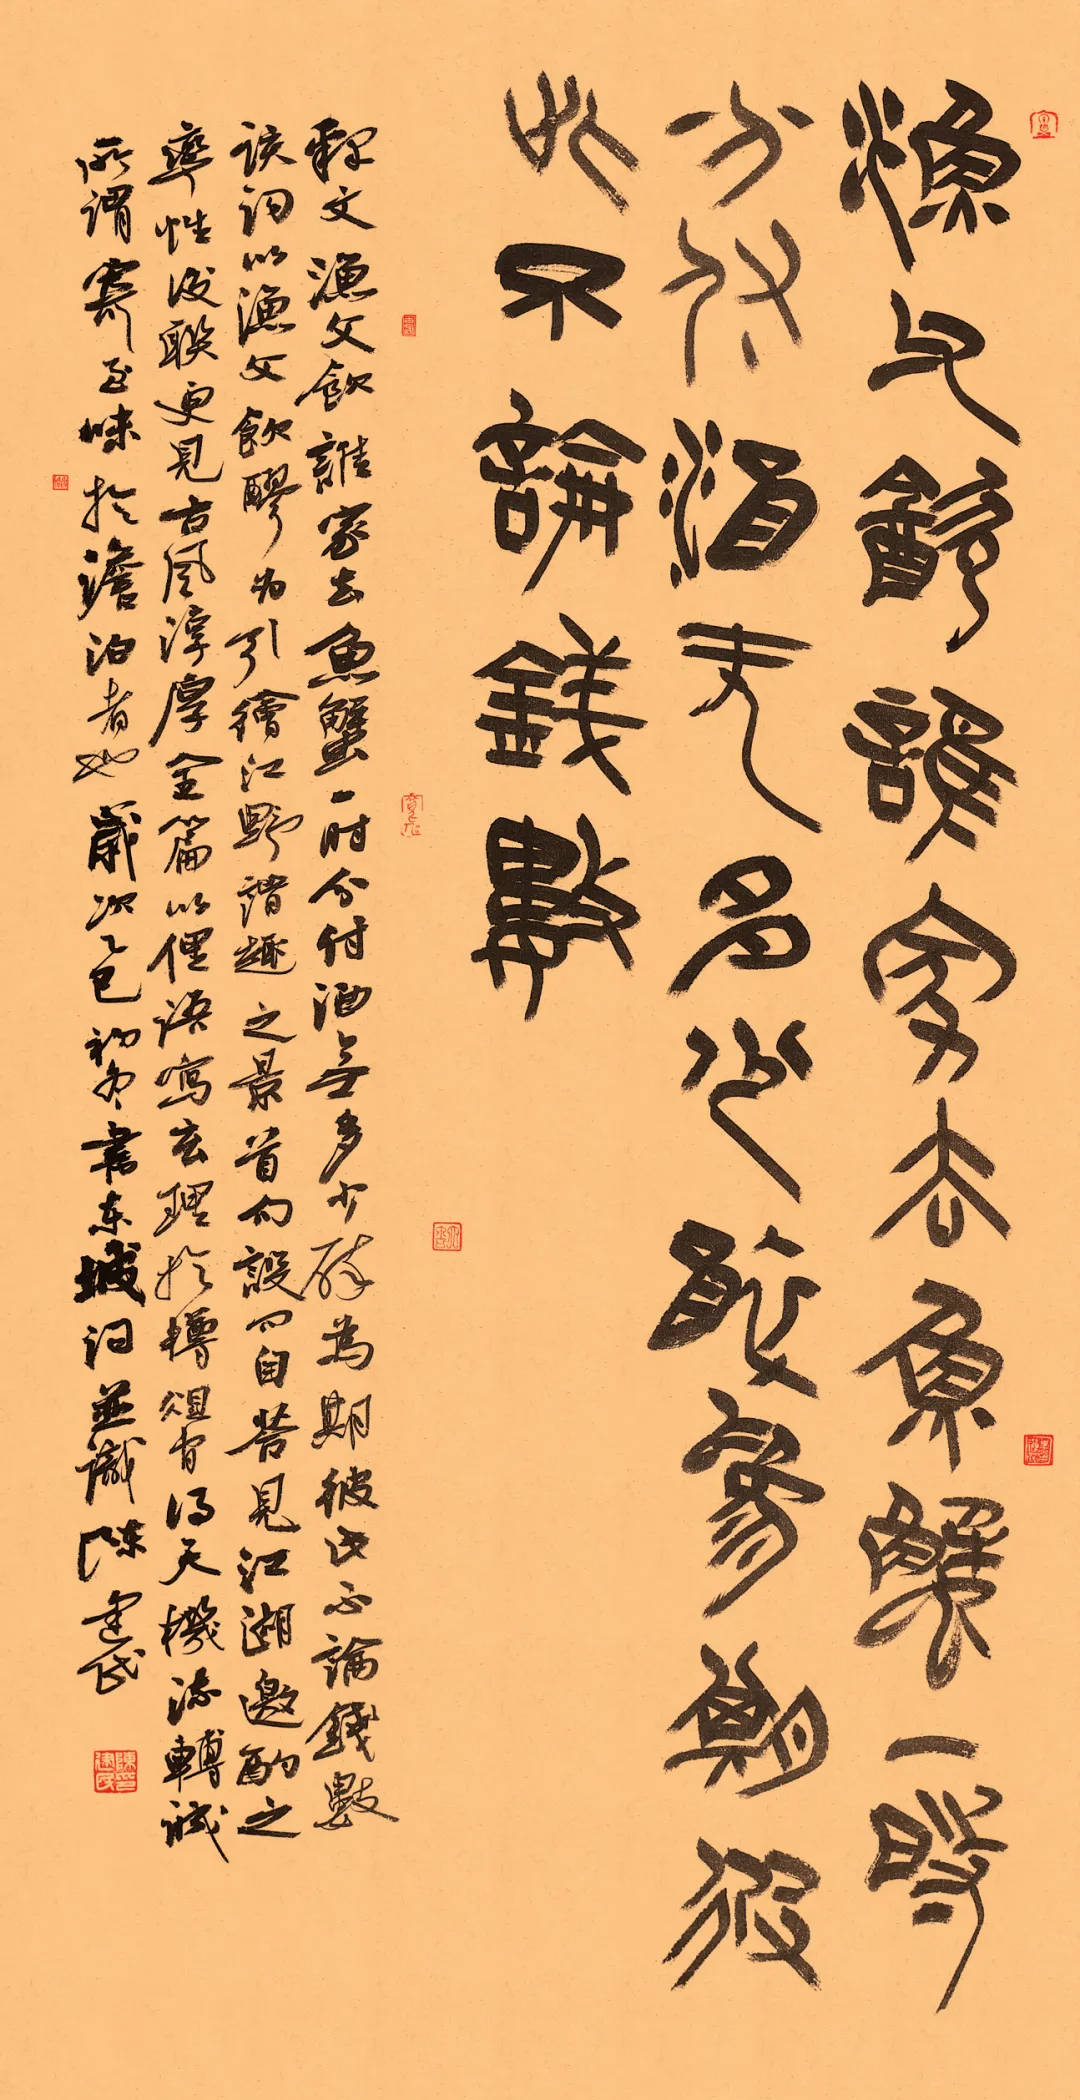 漁父飲誰家去魚蟹一時
分付酒无多少醉為期彼
此不論錢數
釋文漁父飲誰家去魚蟹一時分付酒無多少醉為期彼此不論錢數
該詞以漁父飲醪为引繪江野諧趣之景首句設问自答見江湖邀酌之
率性後联更見古風淳厚全篇以俚語寫玄理於樽俎间得天機流轉誠
所謂寄至味於澹泊者也歲次乙巳初冬書東坡词並識陳建民